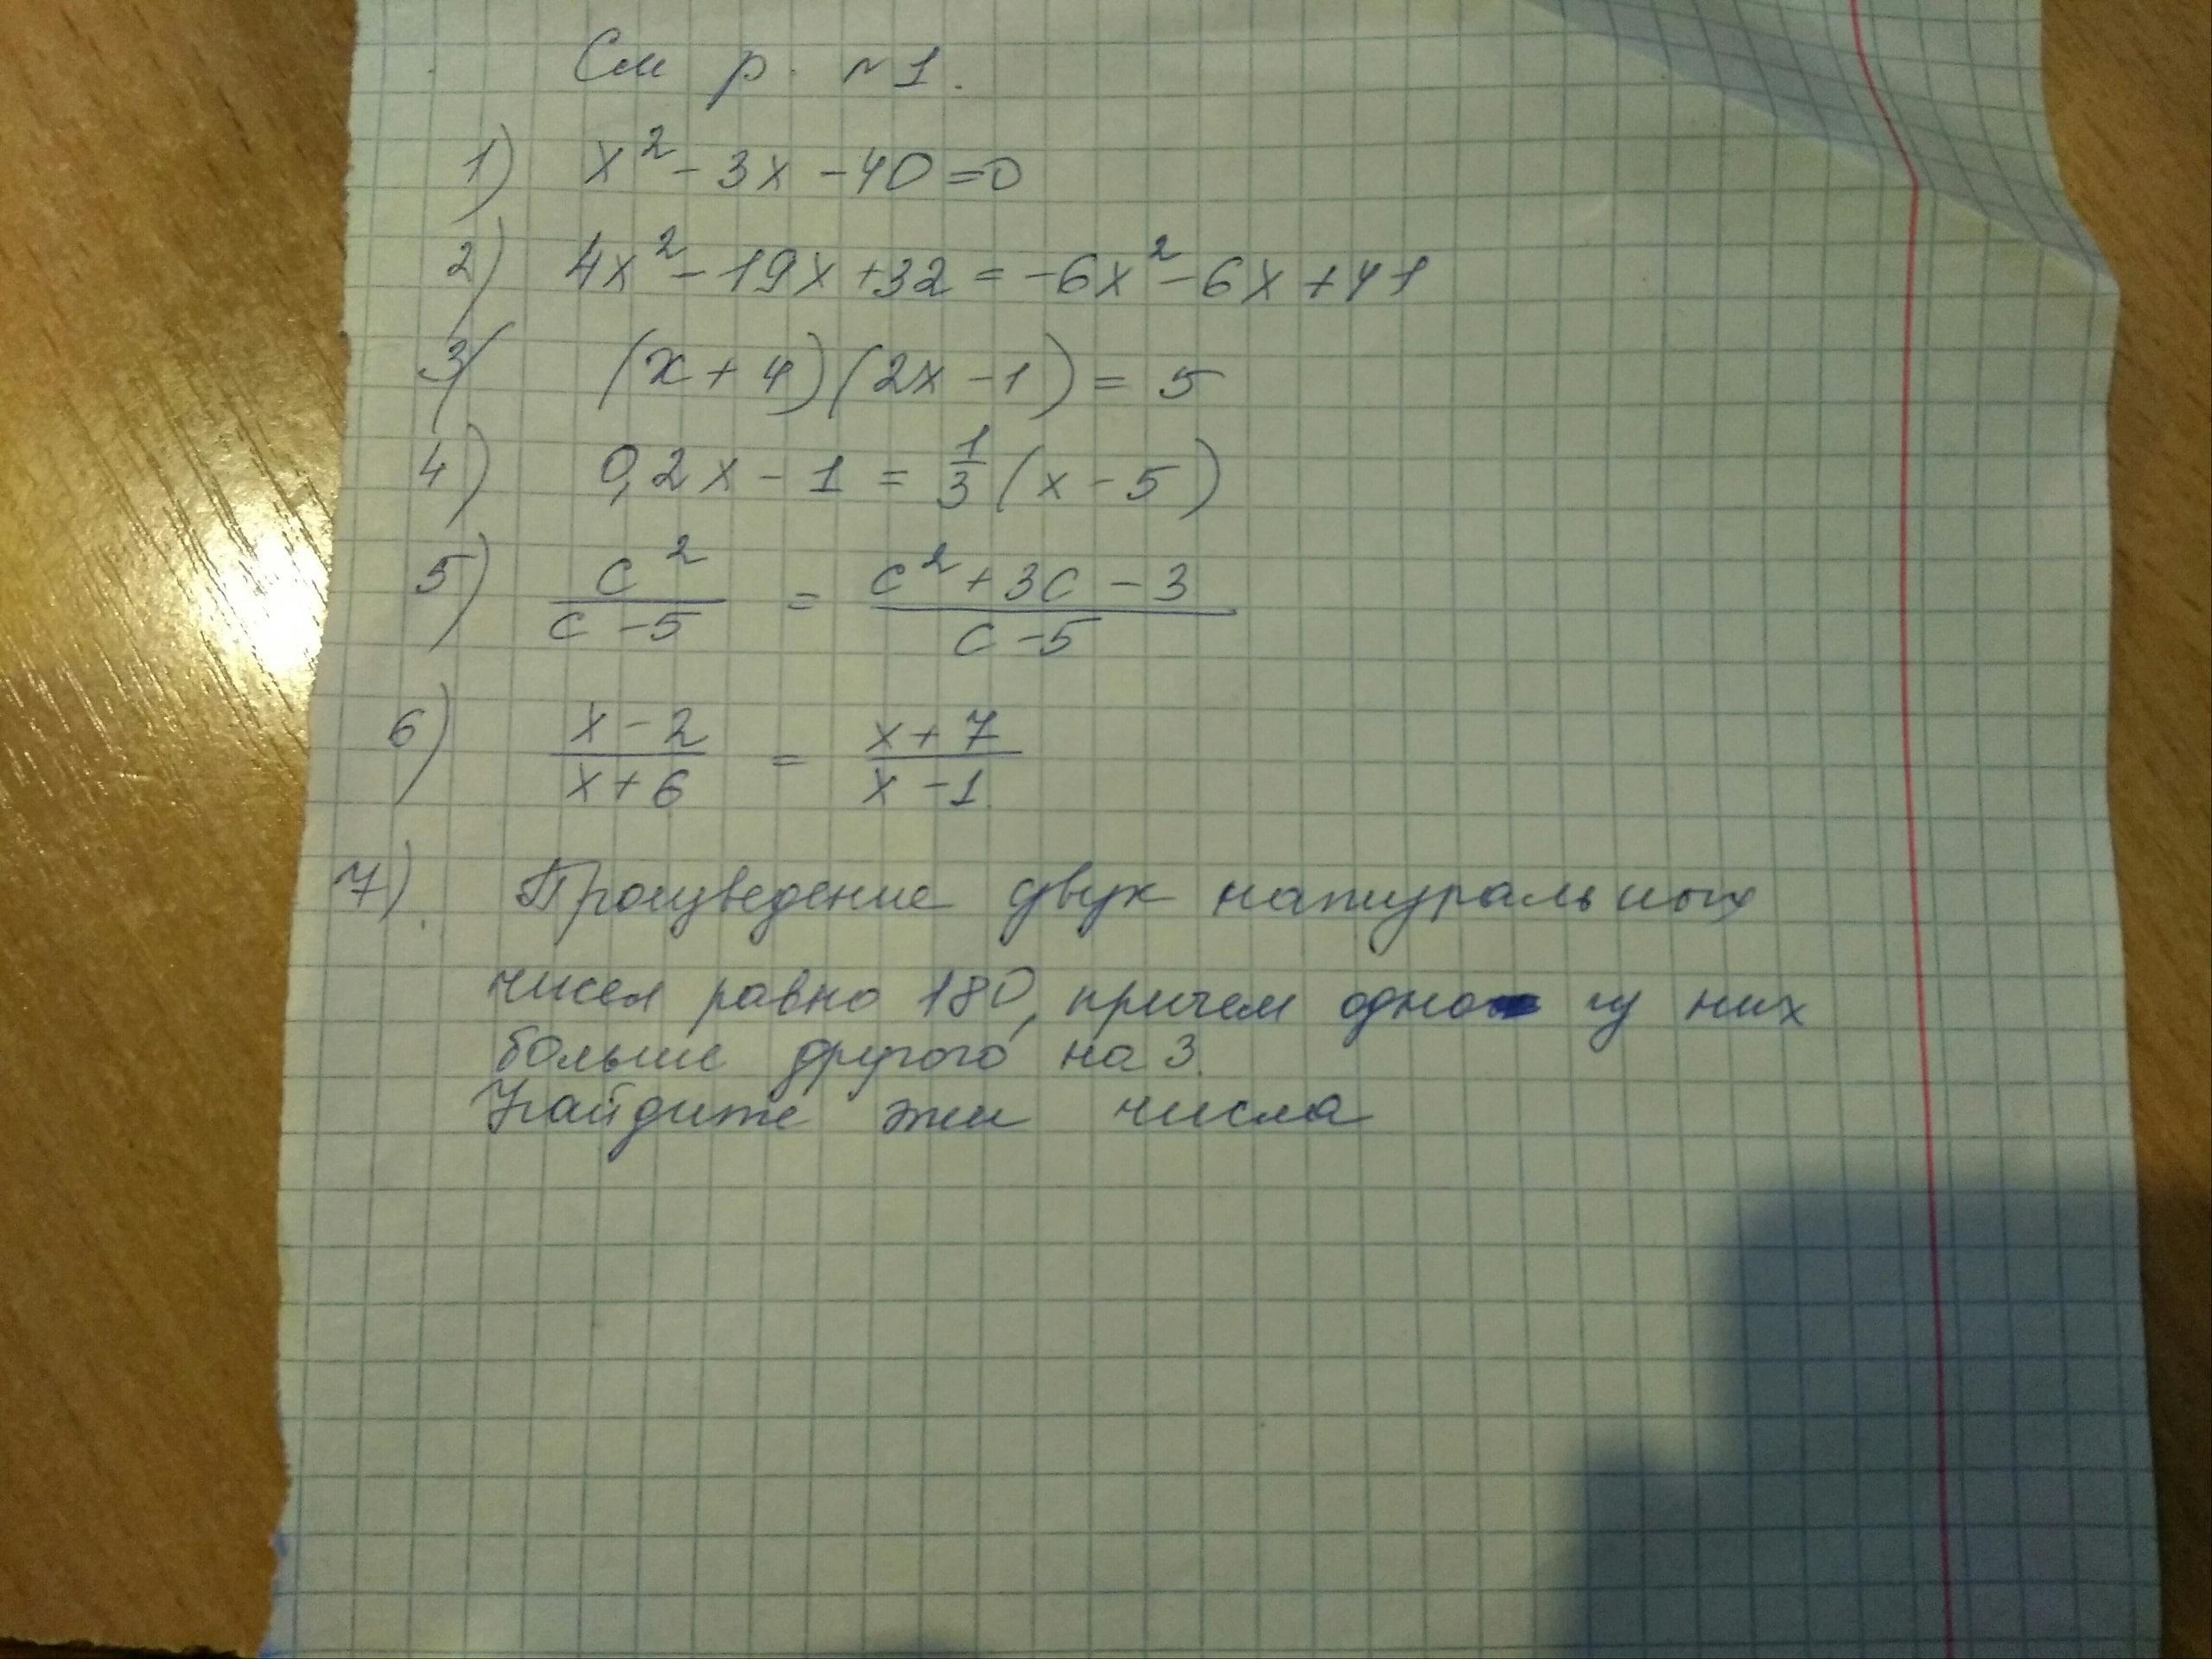 См р. №1.
1) x² - 3x - 40 = 0
2) 4x² - 19x + 32 = -6x² - 6x + 41
3) (x + 4)(2x - 1) = 5
4) 0,2x - 1 = 1/3 (x - 5)
5) c²/(c - 5) = (c² + 3c - 3)/(c - 5)
6) (x - 2)/(x + 6) = (x + 7)/(x - 1)
7). Произведение двух натуральных
чисел равно 180, причем одно из них
больше другого на 3.
Найдите эти числа